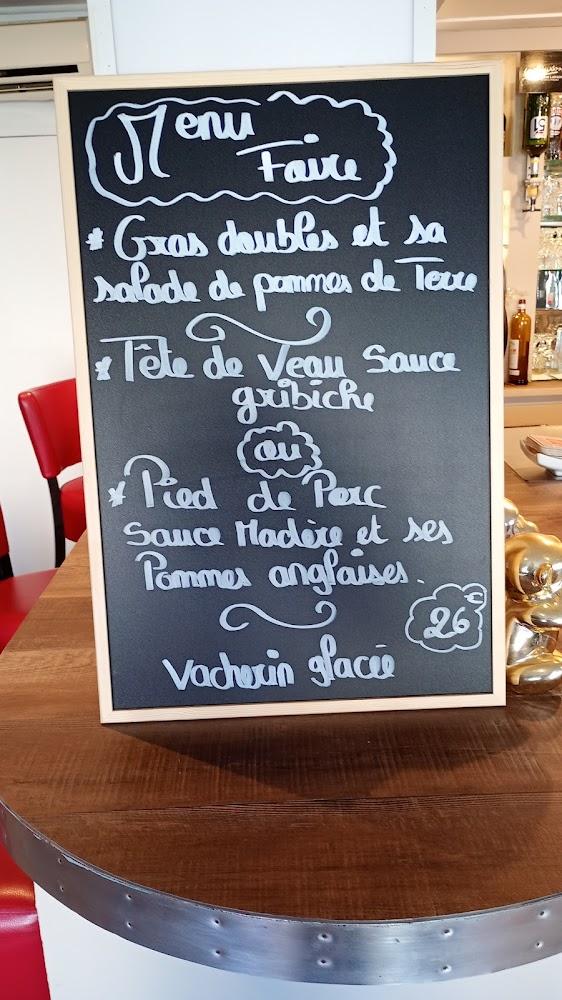 Menu
Foire
* Gras doubles et sa
salade de pommes de Terre
* Tête de Veau Sauce
gribiche
ou
* Pied de Porc
Sauce Madère et ses
Pommes anglaises.
26€
Vacherin glacé